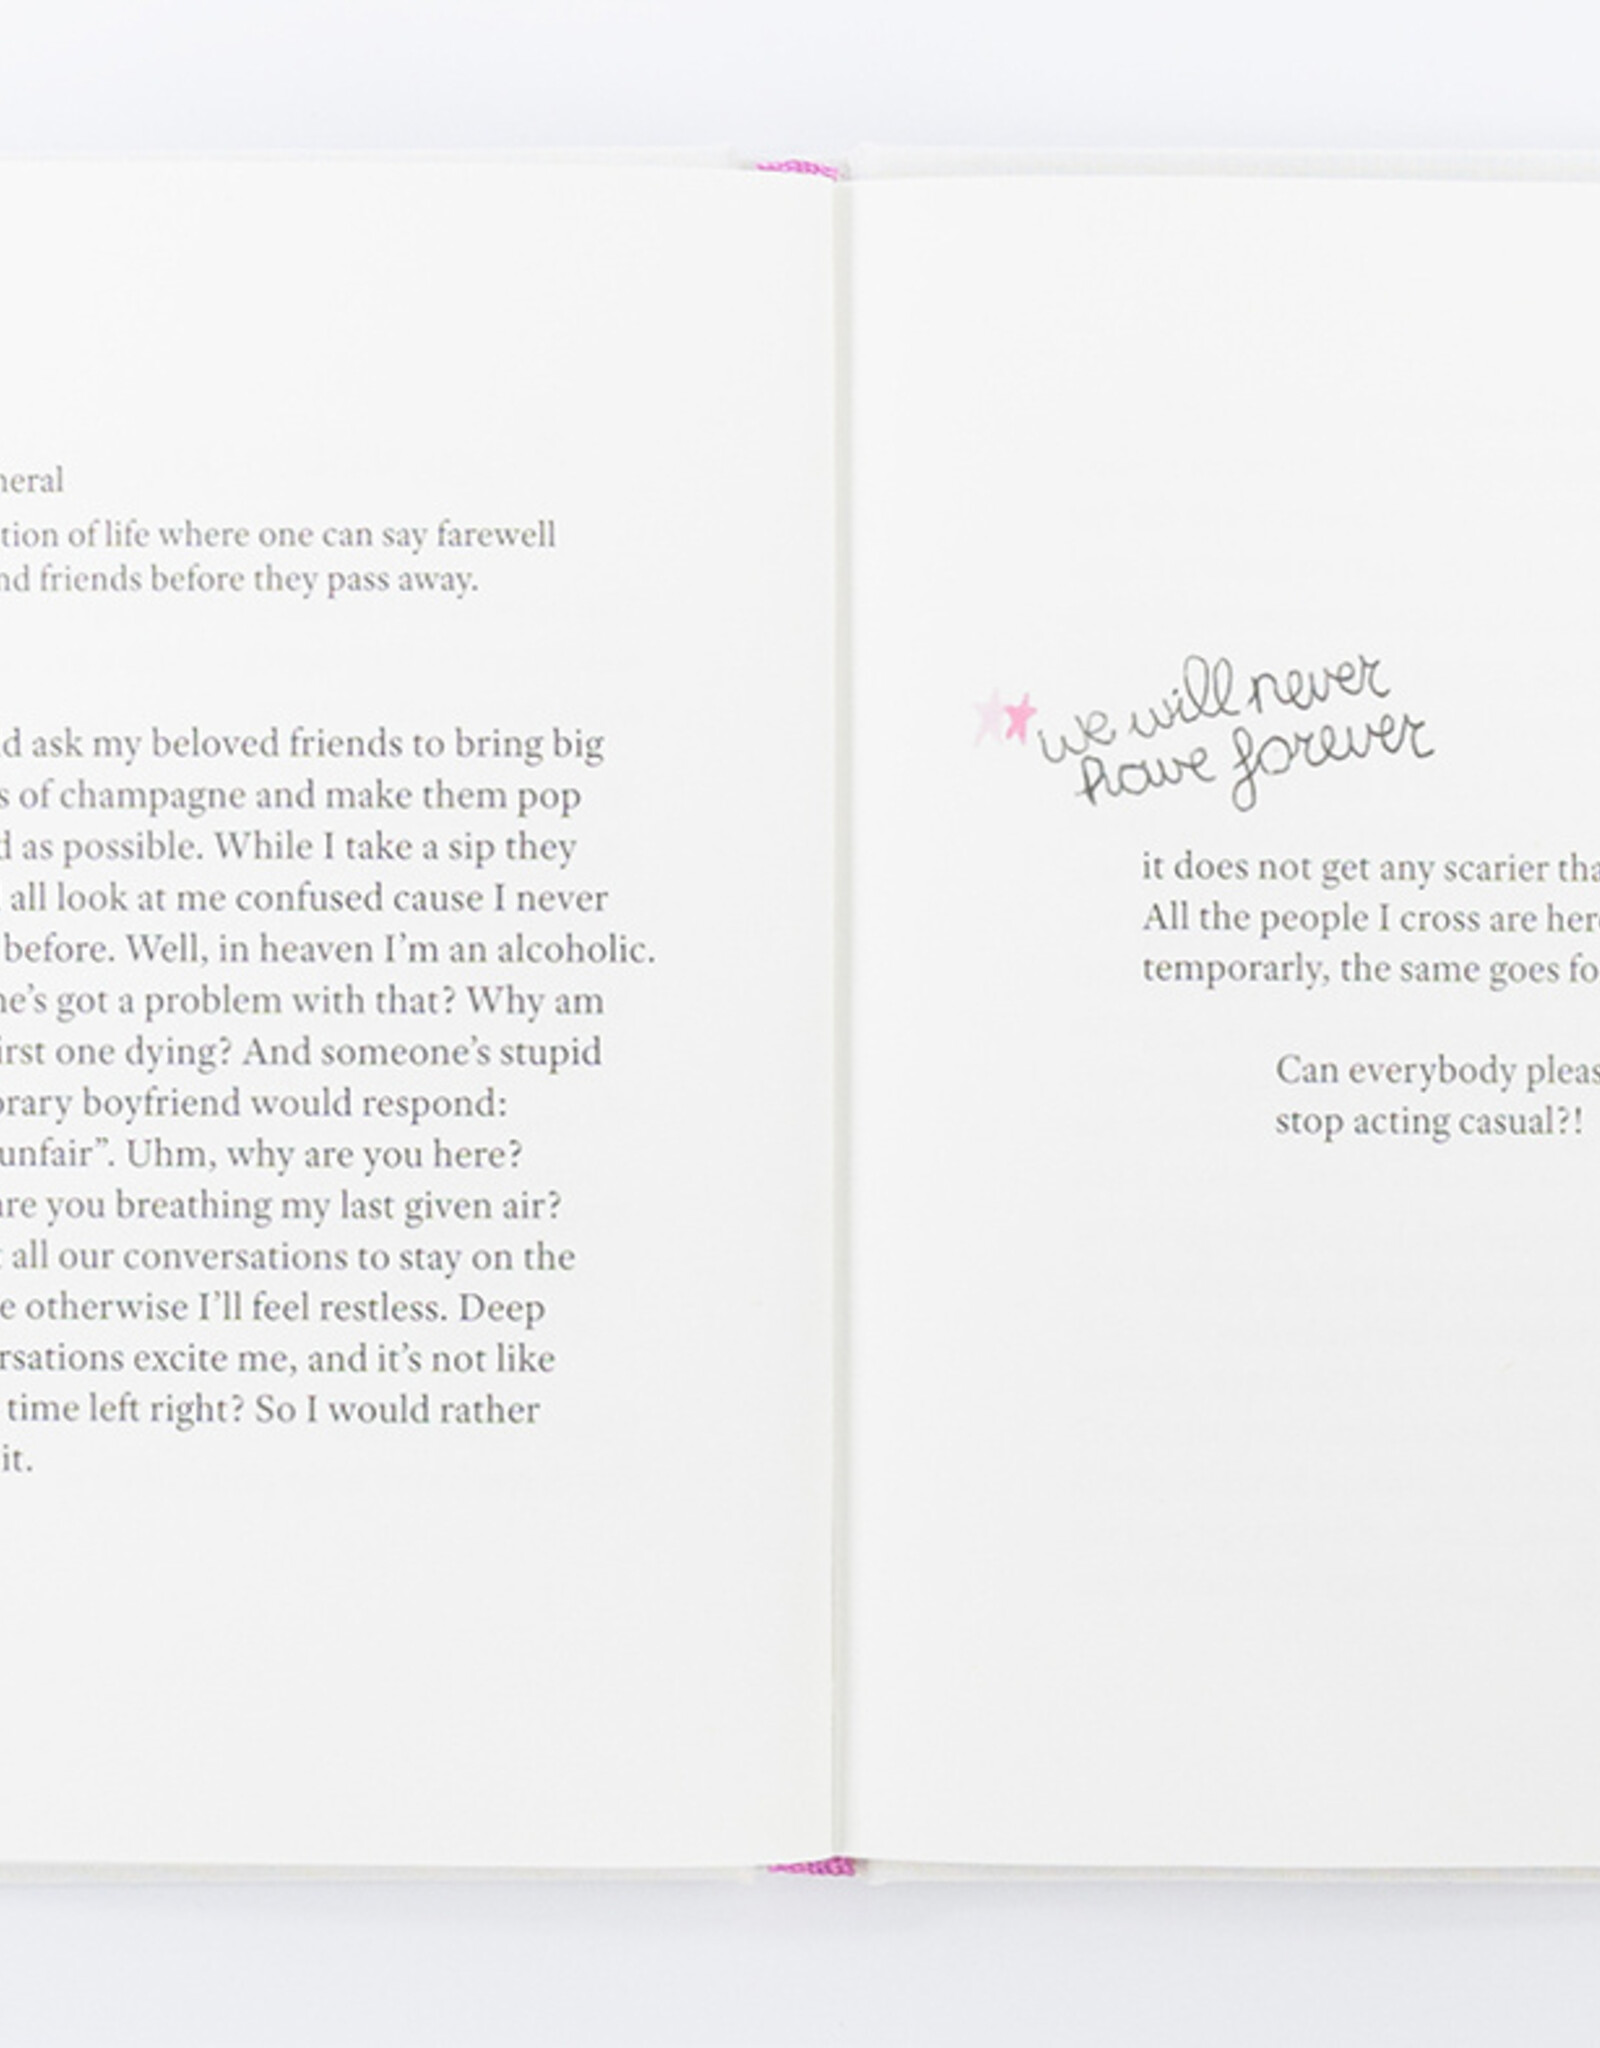 neral
tion of life where one can say farewell
nd friends before they pass away.
d ask my beloved friends to bring big
s of champagne and make them pop
d as possible. While I take a sip they
all look at me confused cause I never
before. Well, in heaven I'm an alcoholic.
ne's got a problem with that? Why am
irst one dying? And someone's stupid
orary boyfriend would respond:
unfair”. Uhm, why are you here?
are you breathing my last given air?
all our conversations to stay on the
e otherwise I'll feel restless. Deep
rsations excite me, and it's not like
time left right? So I would rather
it.
we will never
have forever
it does not get any scarier tha
All the people I cross are her
temporarly, the same goes fo
Can everybody pleas
stop acting casual?!